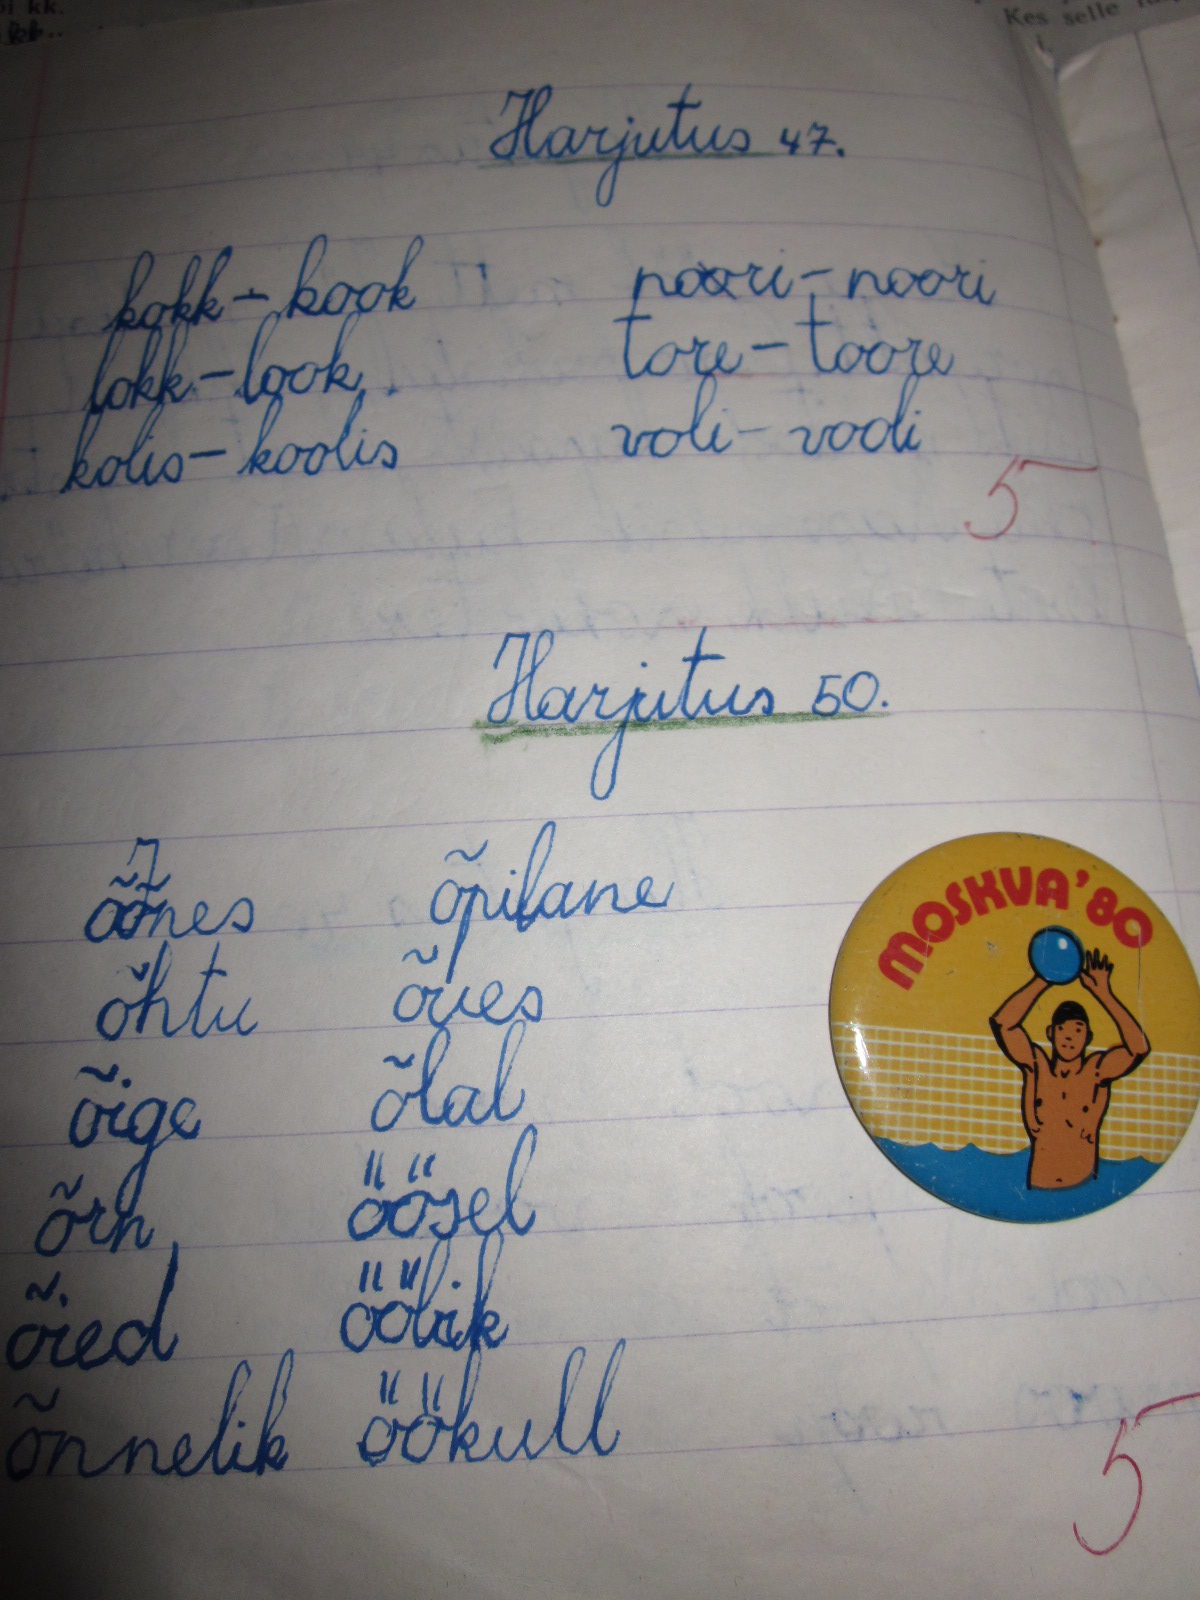 Kes selle
Harjutus 47.
kokk – kook noori – noori
lokk – look tore – toore
kolis – koolis voli – vooli
5
Harjutus 50.
õõnes õpilane
õhtu õues
õige õlal
õrn öösel
õied ööbik
õnnelik öökull
MOSKVA'80
5